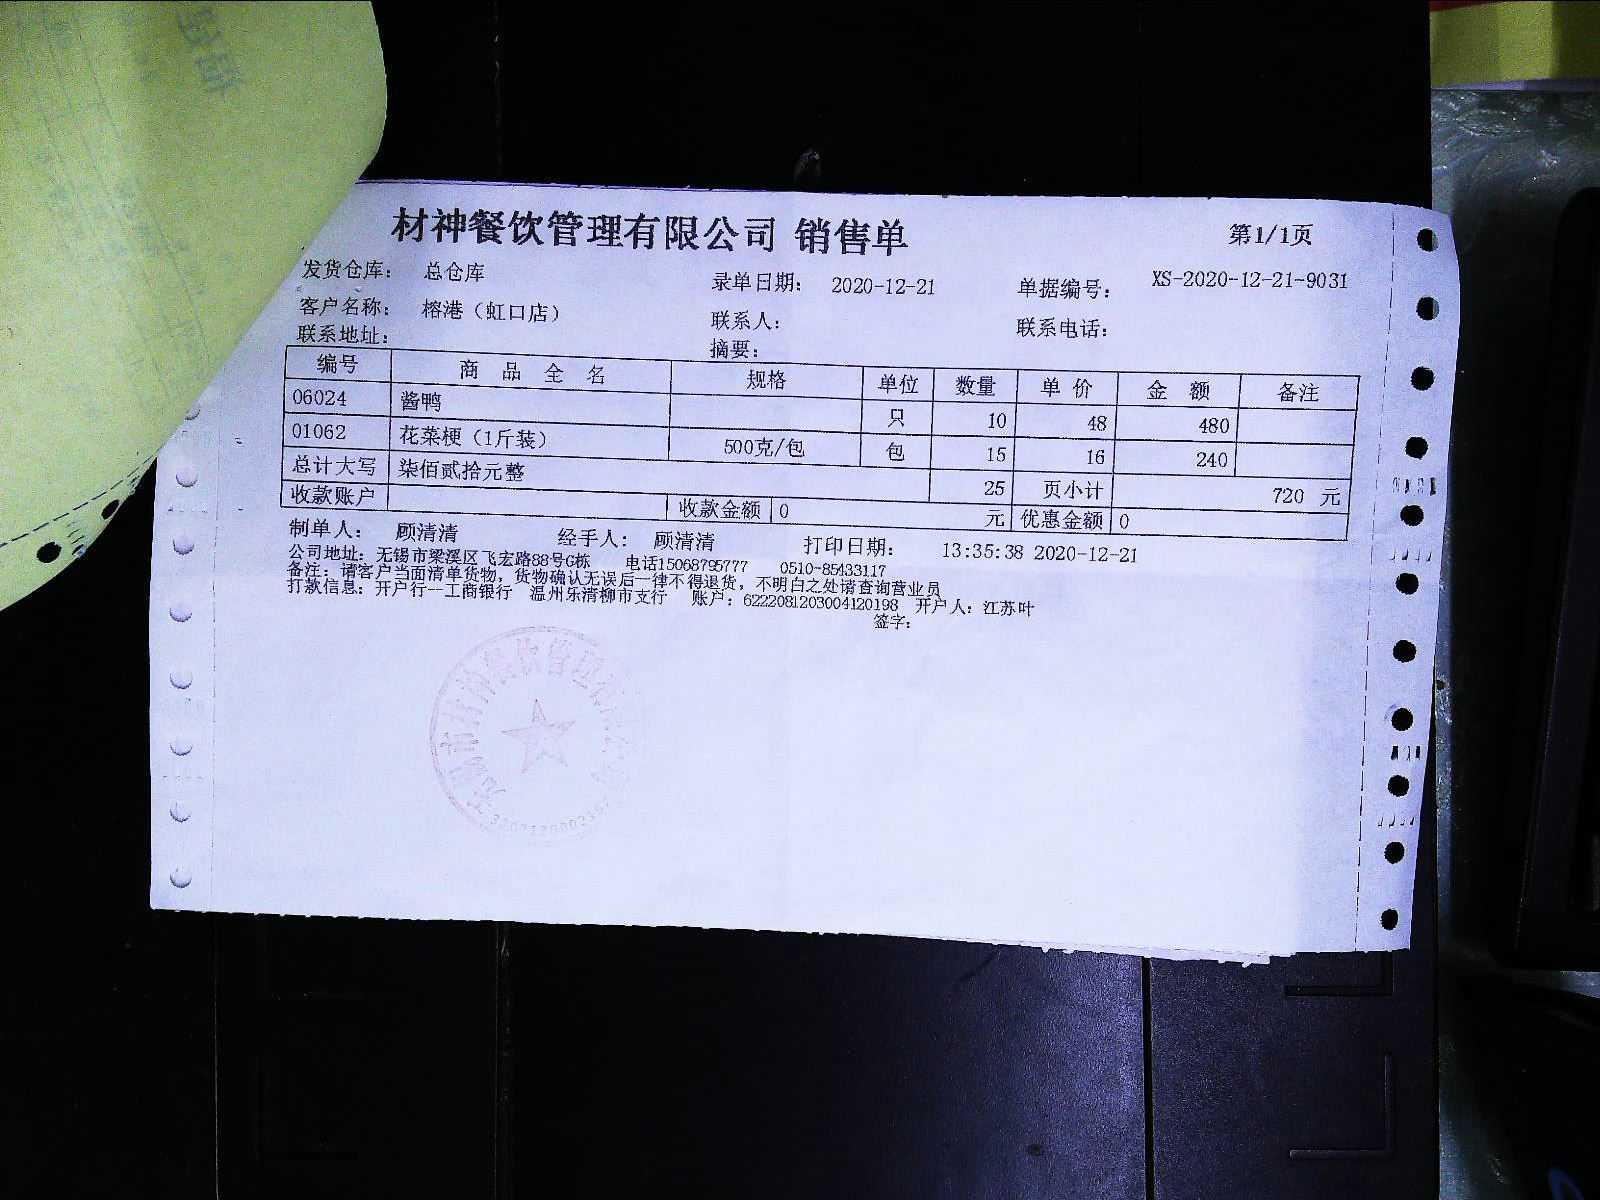 材神餐饮管理有限公司 销售单 第1/1页
发货仓库： 总仓库 录单日期： 2020-12-21 单据编号： XS-2020-12-21-9031
客户名称： 榕港（虹口店） 联系人： 联系电话：
联系地址： 摘要：
编号 商 品 全 名 规格 单位 数量 单 价 金 额 备注
06024 酱鸭 只 10 48 480
01062 花菜梗（1斤装） 500克/包 包 15 16 240
总计大写 柒佰贰拾元整 25 页小计 720 元
收款账户 收款金额 0 元 优惠金额 0
制单人： 顾清清 经手人： 顾清清 打印日期： 13:35:38 2020-12-21
公司地址：无锡市梁溪区飞宏路88号G栋 电话15068795777 0510-85433117
备注：请客户当面清单货物，货物确认无误后一律不得退货，不明白之处请查询营业员
打款信息：开户行一工商银行 温州乐清柳市支行 账户：6222081203004120198 开户人：江苏叶
签字：
无锡市材神餐饮管理有限公司